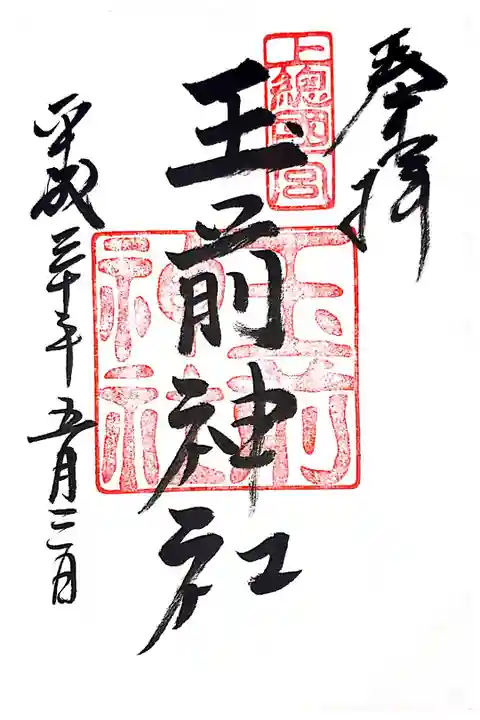 奉拝
上総國一宮
玉前神社
玉前神社
平成三十年五月三日